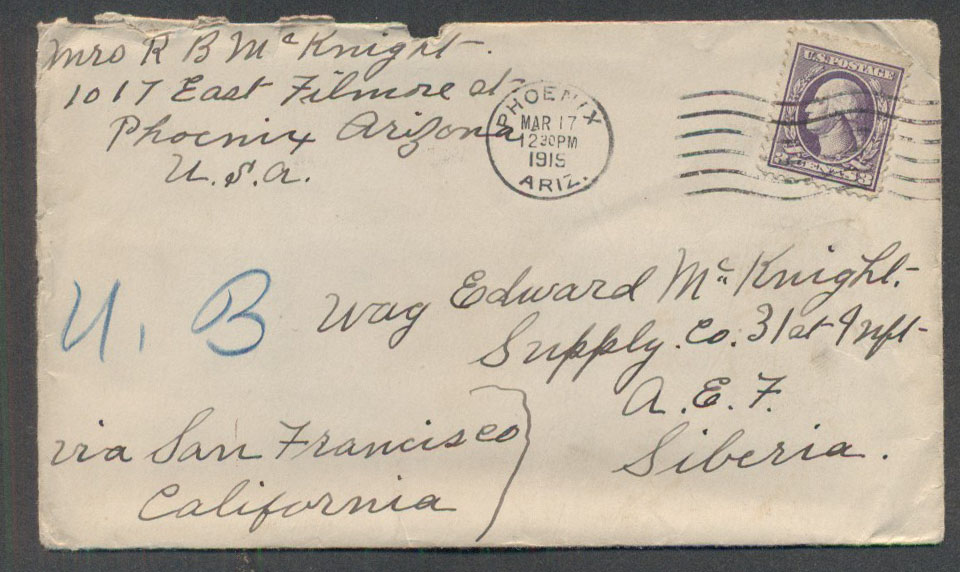 Mrs R B McKnight.
1017 East Filmore st
Phoenix Arizona
U.S.A.
PHOENIX
MAR 17
12 30 PM
1919
ARIZ.
U.S. POSTAGE
3 CENTS 3
U. B
Wag Edward McKnight.
Supply. Co. 31st Inft
A.E.F.
Siberia.
via San Francisco
California